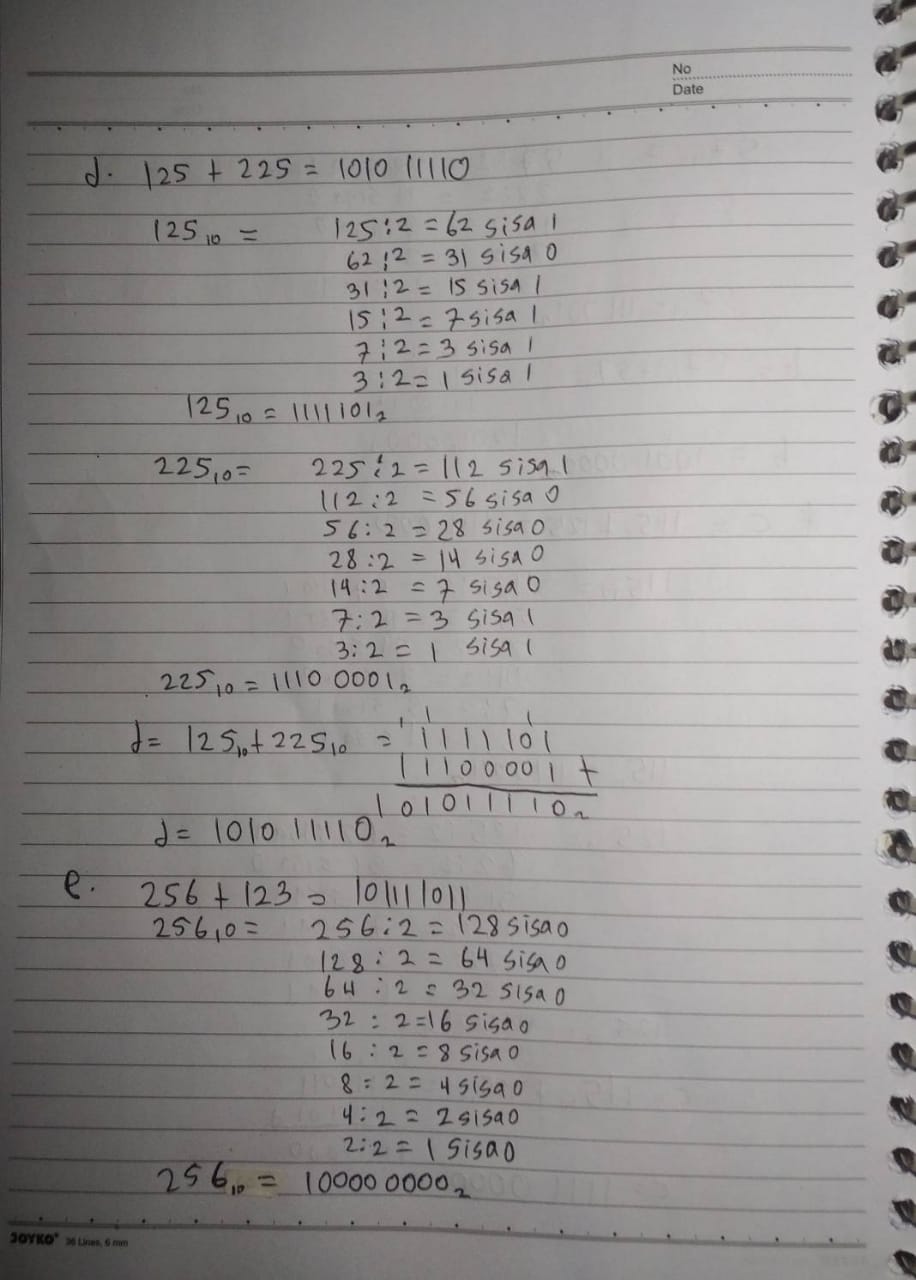 No
Date
d. 125 + 225 = 1010 11110
125₁₀ = 125:2 = 62 sisa 1
62:2 = 31 sisa 0
31:2 = 15 sisa 1
15:2 = 7 sisa 1
7:2 = 3 sisa 1
3:2 = 1 sisa 1
125₁₀ = 1111101₂
225₁₀ = 225:2 = 112 sisa 1
112:2 = 56 sisa 0
56:2 = 28 sisa 0
28:2 = 14 sisa 0
14:2 = 7 sisa 0
7:2 = 3 sisa 1
3:2 = 1 sisa 1
225₁₀ = 1110 0001₂
1 1 1
d = 125₁₀ + 225₁₀ = 1111101
11100001 +
101011110₂
d = 1010 11110₂
e. 256 + 123 = 101111011
256₁₀ = 256:2 = 128 sisa 0
128:2 = 64 sisa 0
64:2 = 32 sisa 0
32:2 = 16 sisa 0
16:2 = 8 sisa 0
8:2 = 4 sisa 0
4:2 = 2 sisa 0
2:2 = 1 sisa 0
256₁₀ = 10000 0000₂
JOYKO® 36 Lines, 6 mm